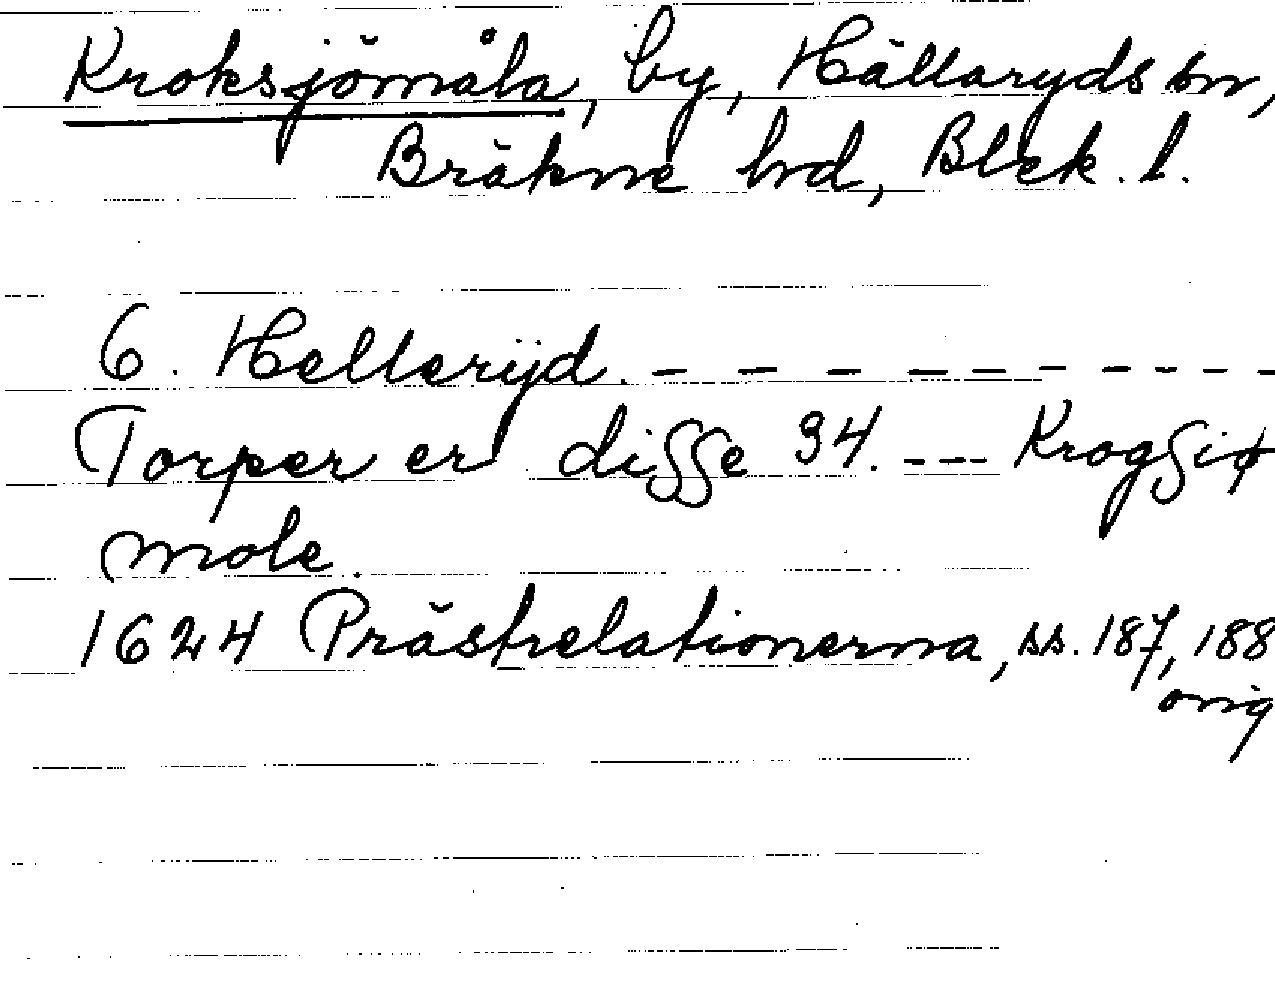 Kroksjömåla, by, Hällaryds sn,
Bräkne hd, Blek. l.
6. Hellerijd. – – – – – – – – –
Torper er disse 34. --- Krogsiø
mole.
1624 Prästrelationerna, ss. 187, 188
orig